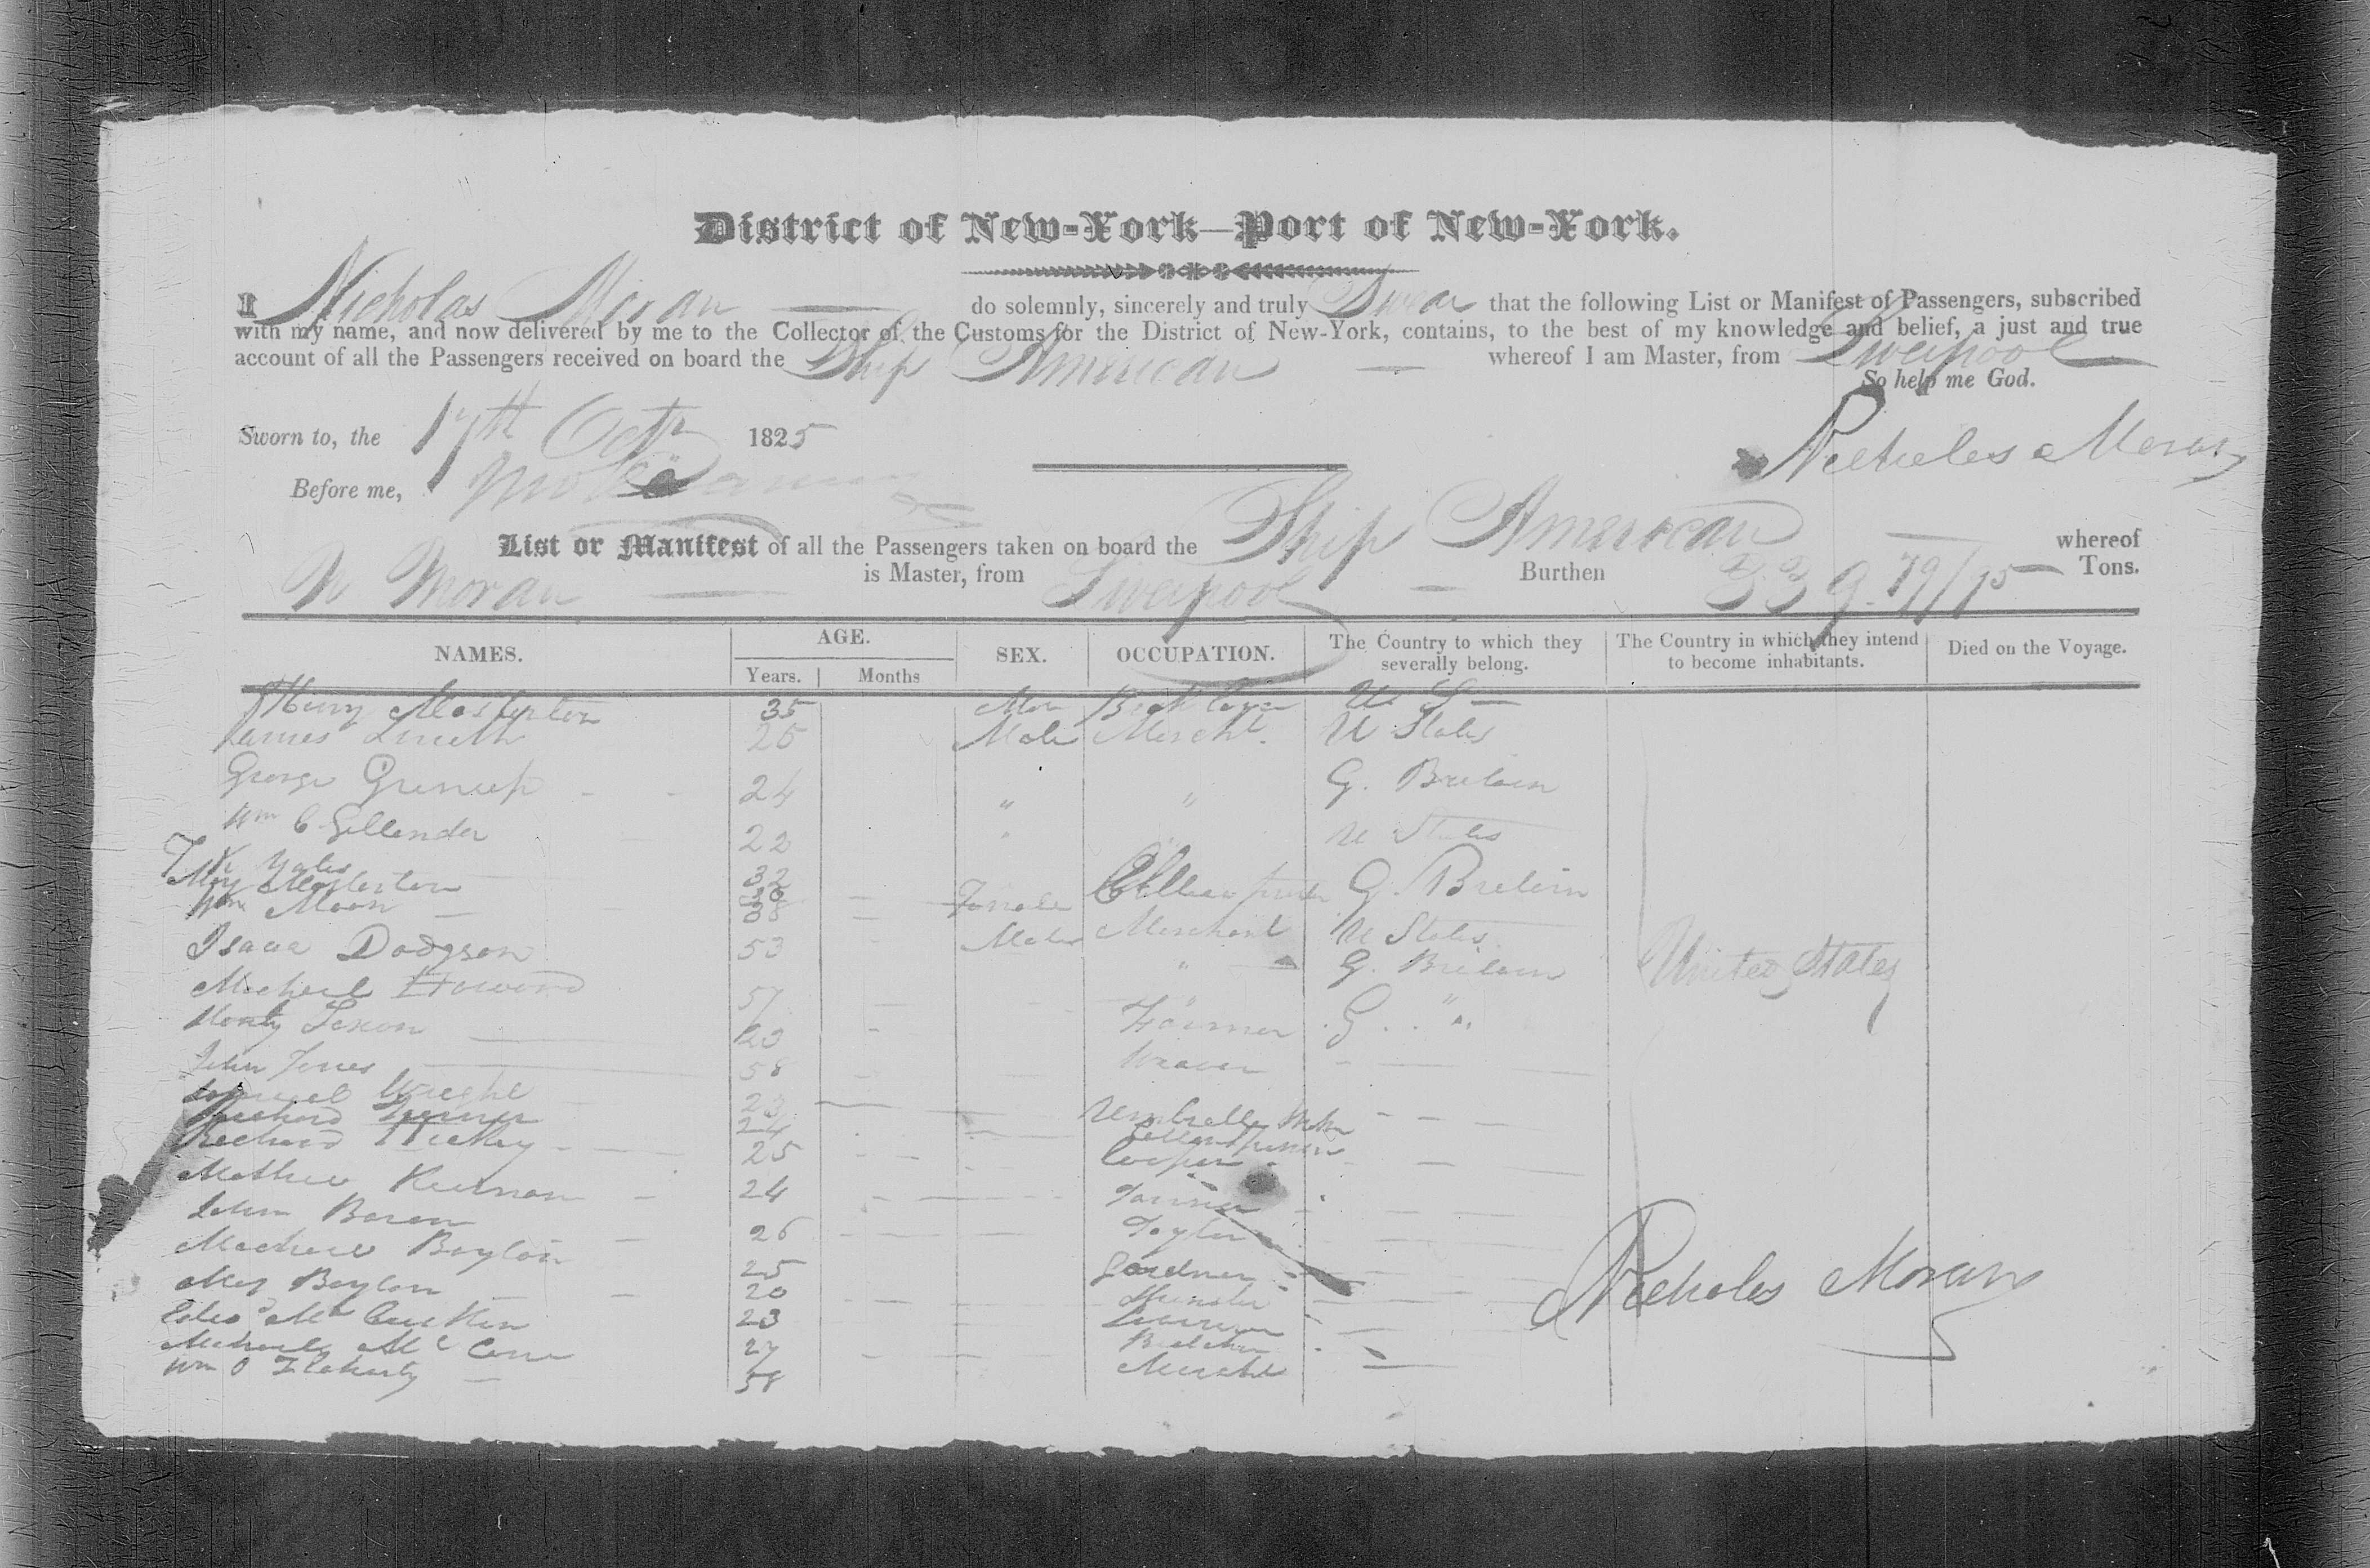 District of New-York—Port of New-York.
I Nicholas Moran do solemnly, sincerely and truly Swear that the following List or Manifest of Passengers, subscribed
with my name, and now delivered by me to the Collector of the Customs for the District of New-York, contains, to the best of my knowledge and belief, a just and true
account of all the Passengers received on board the Ship American whereof I am Master, from Liverpool
So help me God.
Sworn to, the 17th Octr 1825
Nicholas Moran
Before me,
List or Manifest of all the Passengers taken on board the Ship American whereof
N Moran is Master, from Liverpool Burthen 339 79/95 Tons.
NAMES. AGE. SEX. OCCUPATION. The Country to which they severally belong. The Country in which they intend to become inhabitants. Died on the Voyage.
Years. Months
Henry Masterton 35 U S
James 26 Male Mercht. U States
George 24 " " G. Britain
Wm C Gellender 22 " " U States
Yates 32 G. Britain
Mary Masterton Female
Wm Moon 38 Male Merchant U States
Isaac Dodgson 53 " G. Britain
United States
Michael Howard 57 " G. "
23 Farmer
John Jones 58 Weaver
Samuel Wright 23 Umbrella
Richard Turner 24
Richard Hickey 25 Cooper
Mathew Keernan 24 Farmer
John Baron 26 Taylor
Michael Boylan 25 Gardner
Mary Boylan 20 Spinster
23
Nicholas Moran
Mc 27 Butcher
Wm O Flaherty 58 Mercht